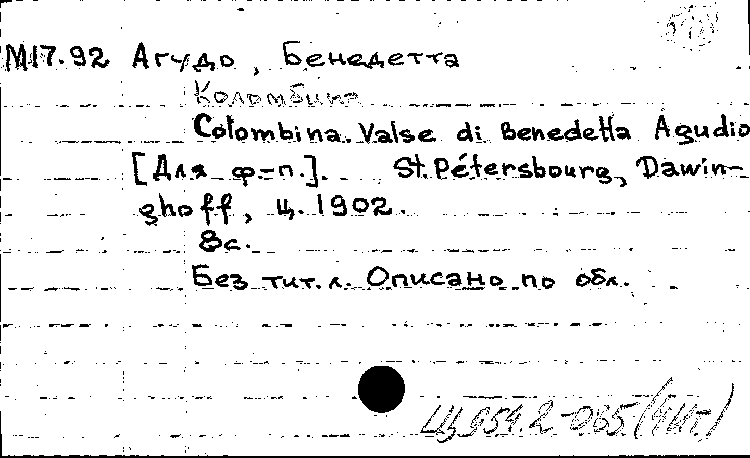 М17.92 Агудо, Бенедетта
Коломбина
Colombina. Valse di Benedetta Agudio
[Для ф-п.]. St. Pétersbourg, Dawin-
ghoff, ц. 1902.
8с.
Без тит. л. Описано по обл.